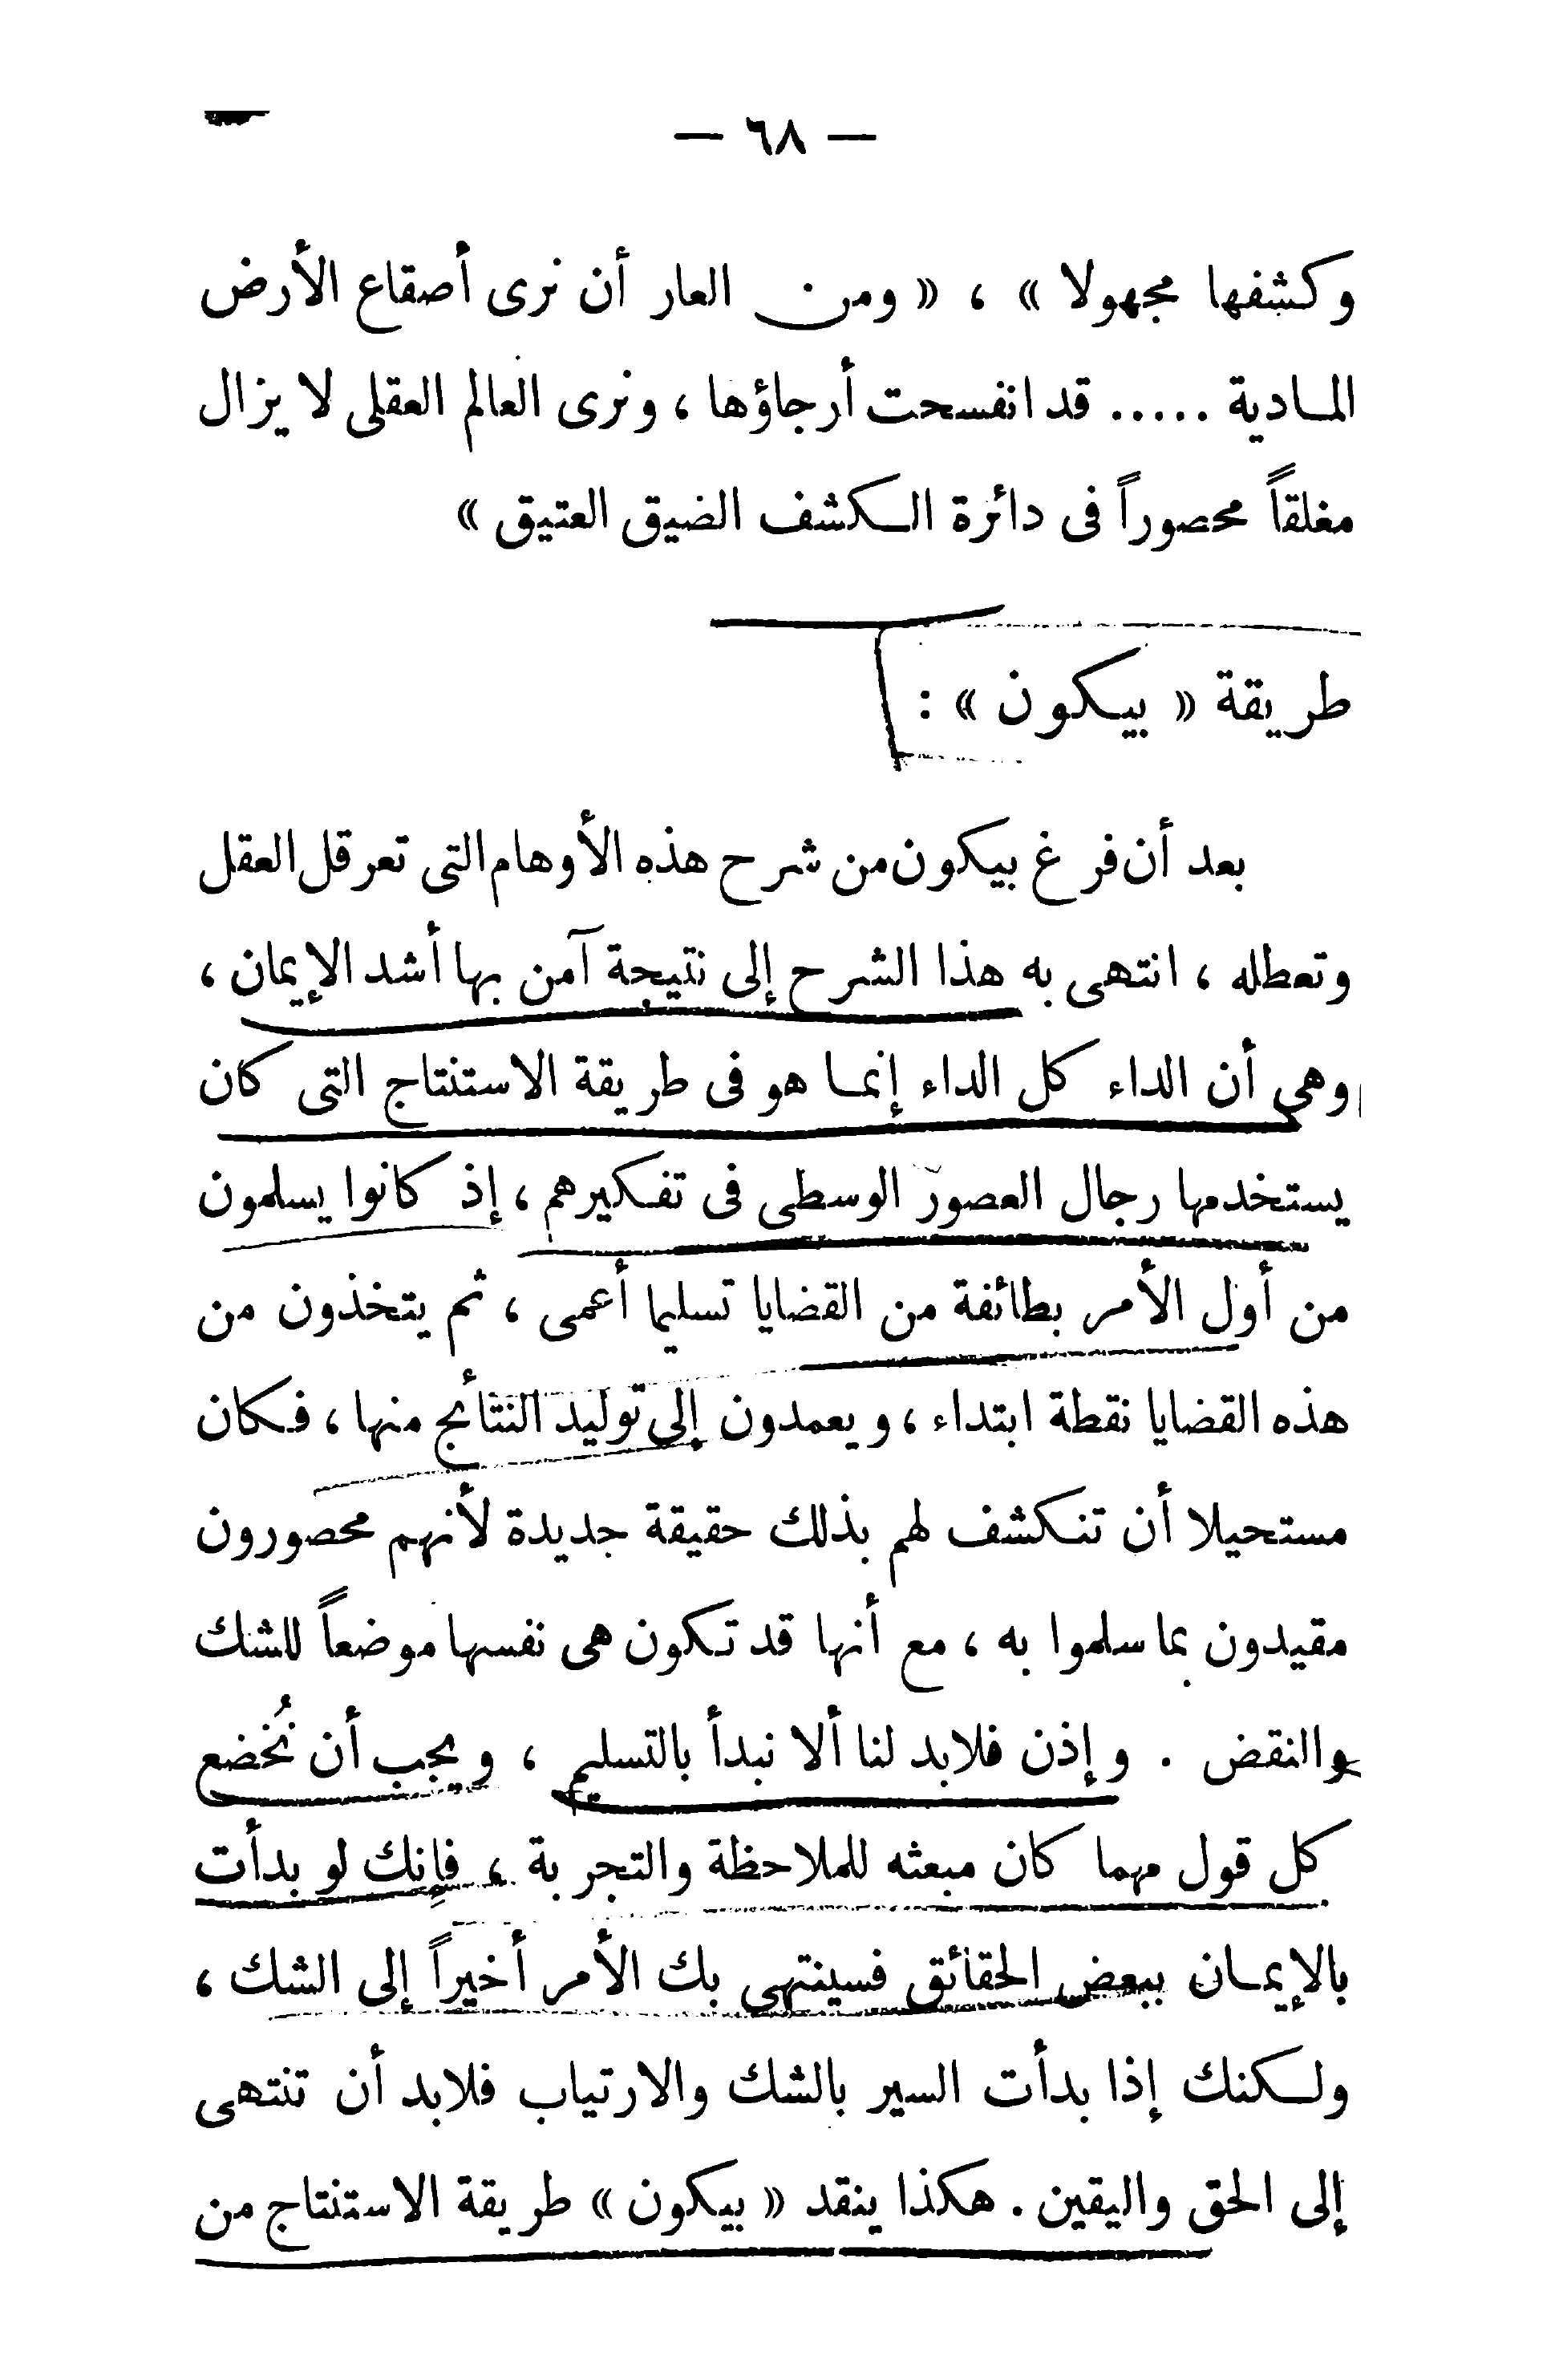 — ٦٨ —
وكشفها مجهولا » ، « ومن العار أن نرى أصقاع الأرض
المادية ..... قد انفسحت أرجاؤها ، ونرى العالم العقلى لا يزال
مغلقاً محصوراً فى دائرة الكشف الضيق العتيق »
طريقة « بيكون » :
بعد أن فرغ بيكون من شرح هذه الأوهام التى تعرقل العقل
وتعطله ، انتهى به هذا الشرح إلى نتيجة آمن بها أشد الإيمان ،
وهى أن الداء كل الداء إنما هو فى طريقة الاستنتاج التى كان
يستخدمها رجال العصور الوسطى فى تفكيرهم ، إذ كانوا يسلمون
من أول الأمر بطائفة من القضايا تسليما أعمى ، ثم يتخذون من
هذه القضايا نقطة ابتداء ، ويعمدون إلى توليد النتائج منها ، فكان
مستحيلا أن تنكشف لهم بذلك حقيقة جديدة لأنهم محصورون
مقيدون بما سلموا به ، مع أنها قد تكون هى نفسها موضعاً للشك
والنقض . وإذن فلابد لنا ألا نبدأ بالتسليم ، ويجب أن نُخضع
كل قول مهما كان مبعثه للملاحظة والتجربة ، فإنك لو بدأت
بالإيمان ببعض الحقائق فسينتهى بك الأمر أخيراً إلى الشك ،
ولكنك إذا بدأت السير بالشك والارتياب فلابد أن تنتهى
إلى الحق واليقين . هكذا ينقد « بيكون » طريقة الاستنتاج من